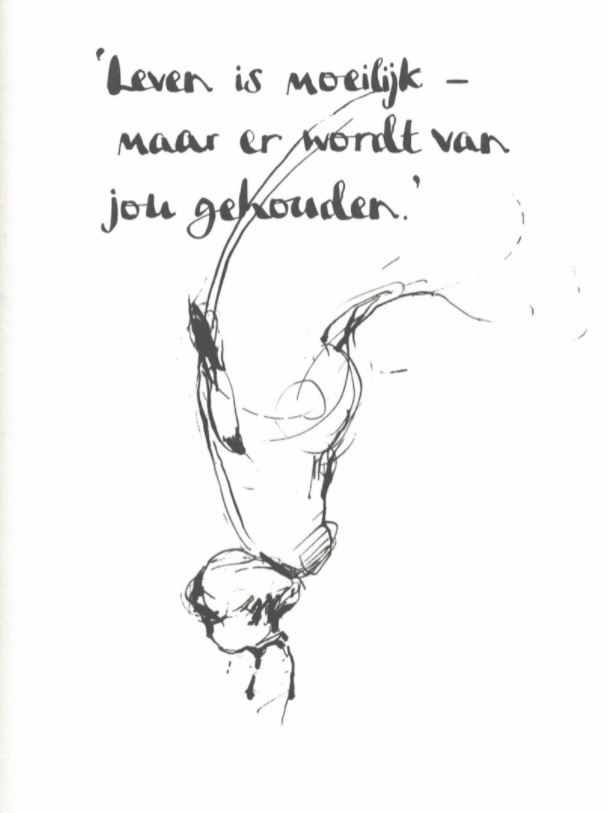 'Leven is moeilijk –
maar er wordt van
jou gehouden.'